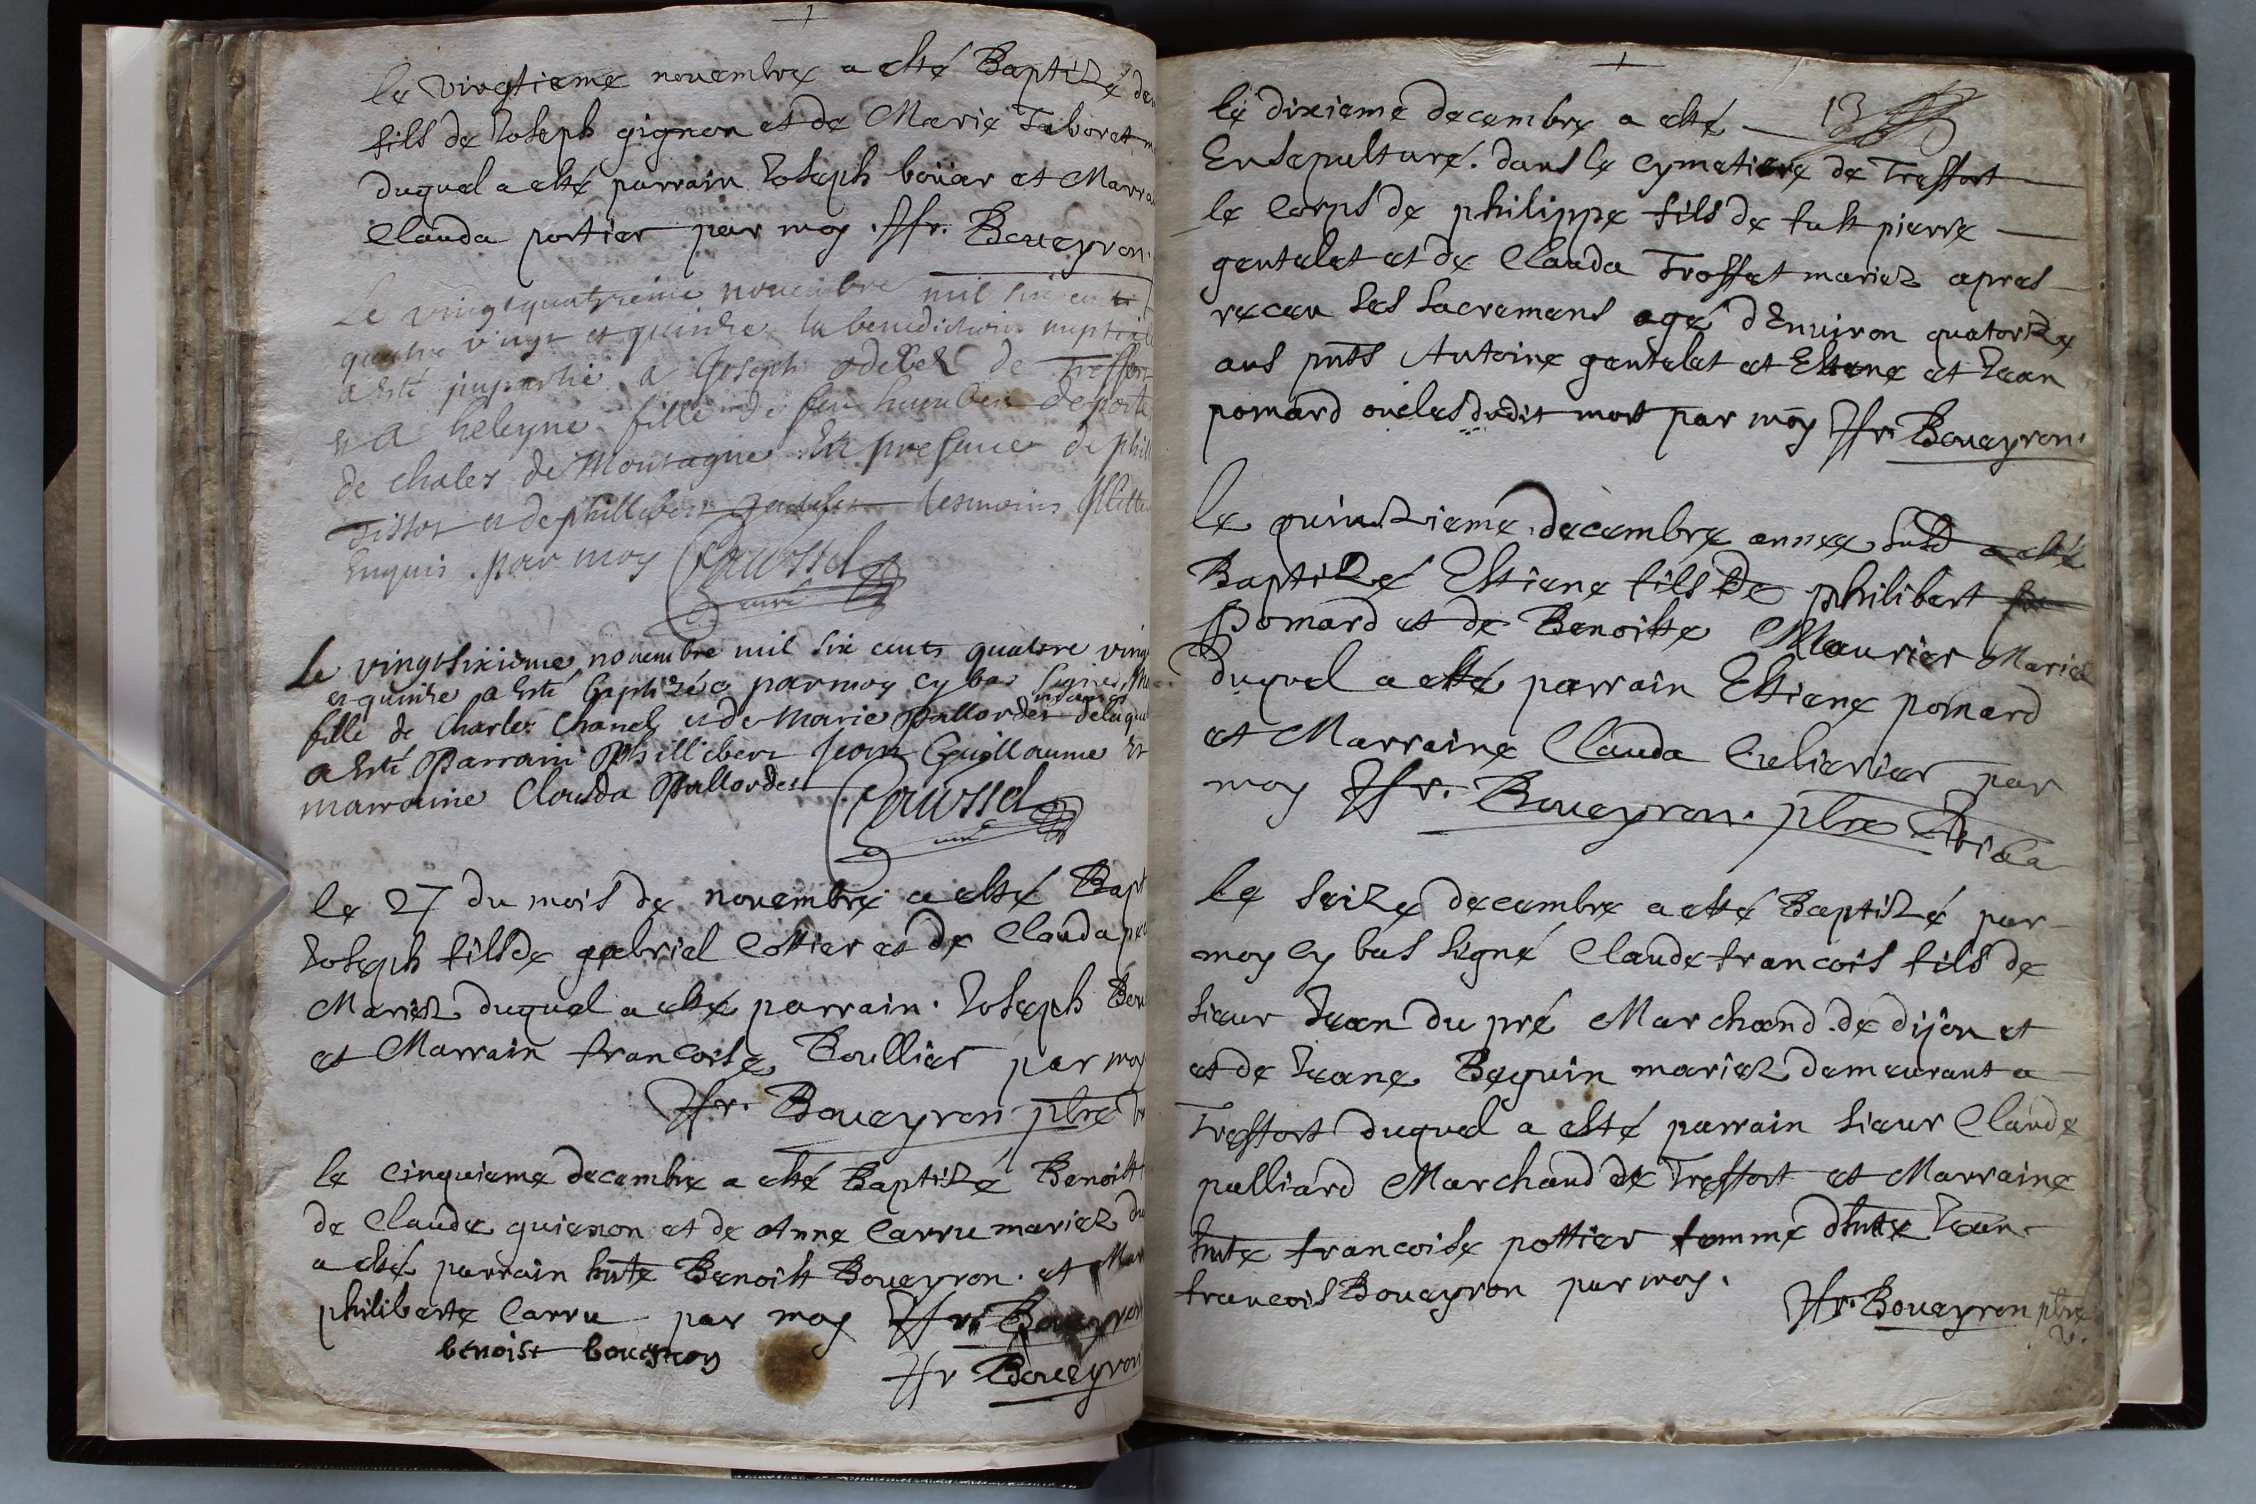 le vingtieme novembre a esté Baptizé
fils de Joseph gignon et de Marie Taboret
duquel a esté parrain Joseph boüar et Marra
Clauda portier par moy. Jfr. Boueyron.
Le vingtquatrieme novembre mil six cents
quatre vingt et quinze la benediction nuptial
a esté impartie a Joseph odebez de Treffort
et a heleyne fille de feu humber
de chales de Montagne en presence de phill
Tissot et de phillibert tesmoins illitte
enquis par moy Coussel
curé
Le vingtsixieme novembre mil six cents quatre vingt
et quinze a esté baptizée par moy cy bas signé
fille de Charles Chanel et de Marie Pallordet delaquel
mariés
a esté Parrain Phillibert Jean Guillaume Et
marraine Clauda Pallordet Coussel
curé
le 27 du mois de novembre a esté Bapt
Joseph fils de gabriel Cottier et de Clauda
Mariez duquel a esté parrain. Joseph Bou
et Marrain francoise Boullier par moy
Jfr. Boueyron pbre
le cinquieme decembre a esté Baptizé Benoist
de Claude guienon et de Anne Carru mariez du
a esté parrain hnte Benoist Boueyron. et Mar
philiberte Carru par moy Jfr. Boueyron
benoist boueyron
Jfr Boueyron
13
le dixieme decembre a esté
Ensepulturé. dans le cymetiere de Treffort
le Corps de philippe fils de fust pierre
gentelet et de Clauda Troffet mariez apres
receu ses sacremens agé d'Environ quatorze
ans pnts Antoine gentelet et Etiene et Jean
pomard oncles dudit mort par moy Jfr. Boueyron.
le quinzieme decembre annee susd a esté
Baptizé Estiene fils de philibert
Pomard et de Benoitte Maurier Mariez
duquel a esté parrain Estiene pomard
et Marraine Clauda Culierier par
moy Jfr. Boueyron. pbre vicā
le seize decembre a esté Baptizé par
moy cy bas signé Claude francois fils de
sieur Jean du pré Marchand de dijon et
et de Jeane Beguin mariez demeurant a
Treffort duquel a esté parrain sieur Claude
palliard Marchand de Treffort et Marraine
hnte francoise pottier femme dhnte Jean
francois Boueyron par moy.
Jfr. Boueyron pbre
v.